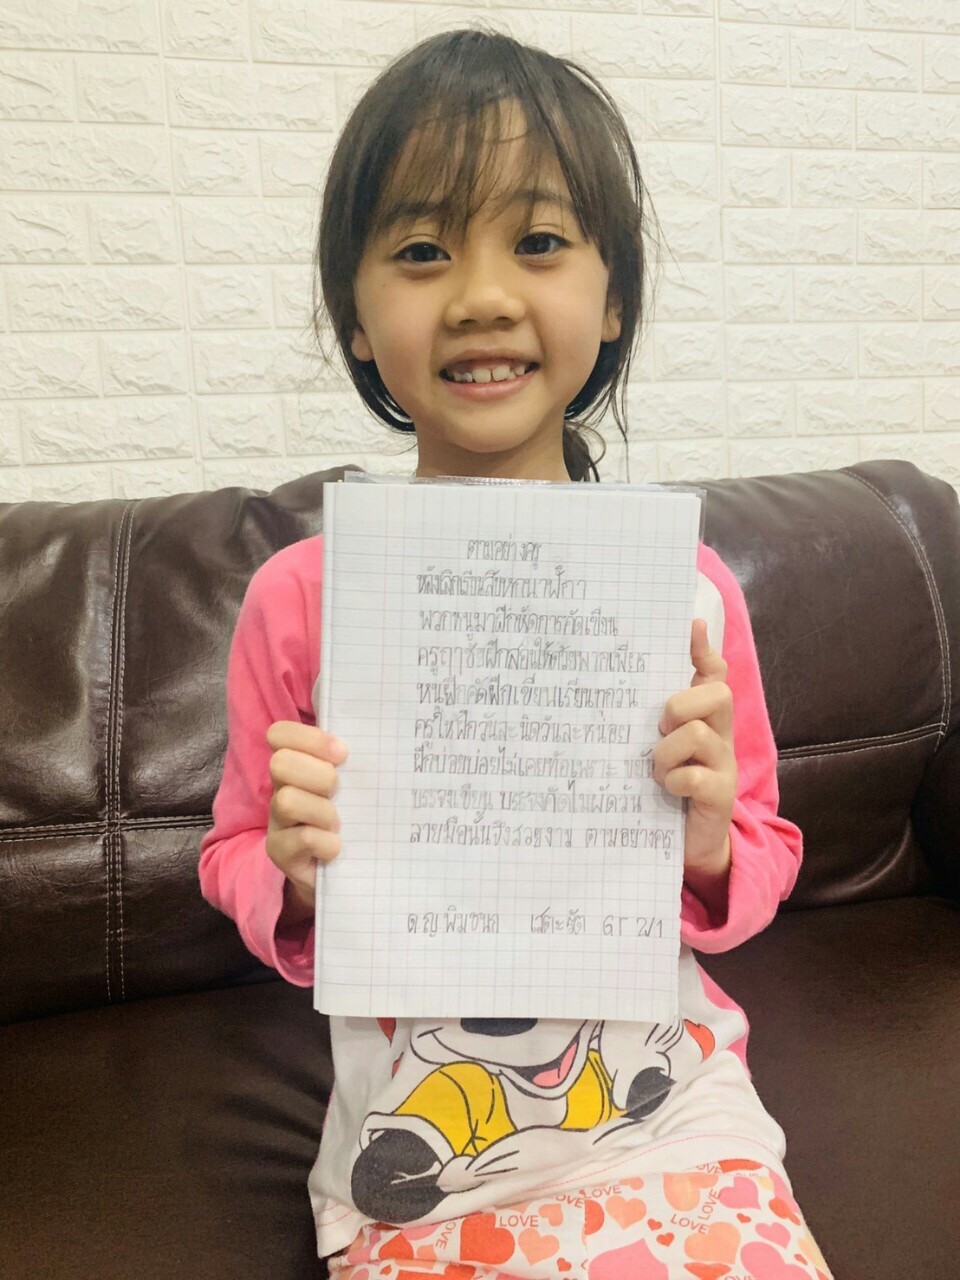 ตามอย่างครู
หลังเลิกเรียนสิบหกนาฬิกา
พวกหนูมาฝึกหัดการคัดเขียน
ครูฤาชังฝึกสอนให้ด้วยพากเพียร
หนูฝึกคัดฝึกเขียนเรียนทุกวัน
ครูให้ฝึกวันละนิดวันละหน่อย
ฝึกบ่อยบ่อยไม่เคยท้อเพราะ
บรรจงเขียน บรรจงคัดไม่ผัดวัน
ลายมือนั้นจึงสวยงาม ตามอย่างครู
ด ญ พิมชนก GT 2/1
LOVE
LOVE
LOVE
LOVE
LOVE